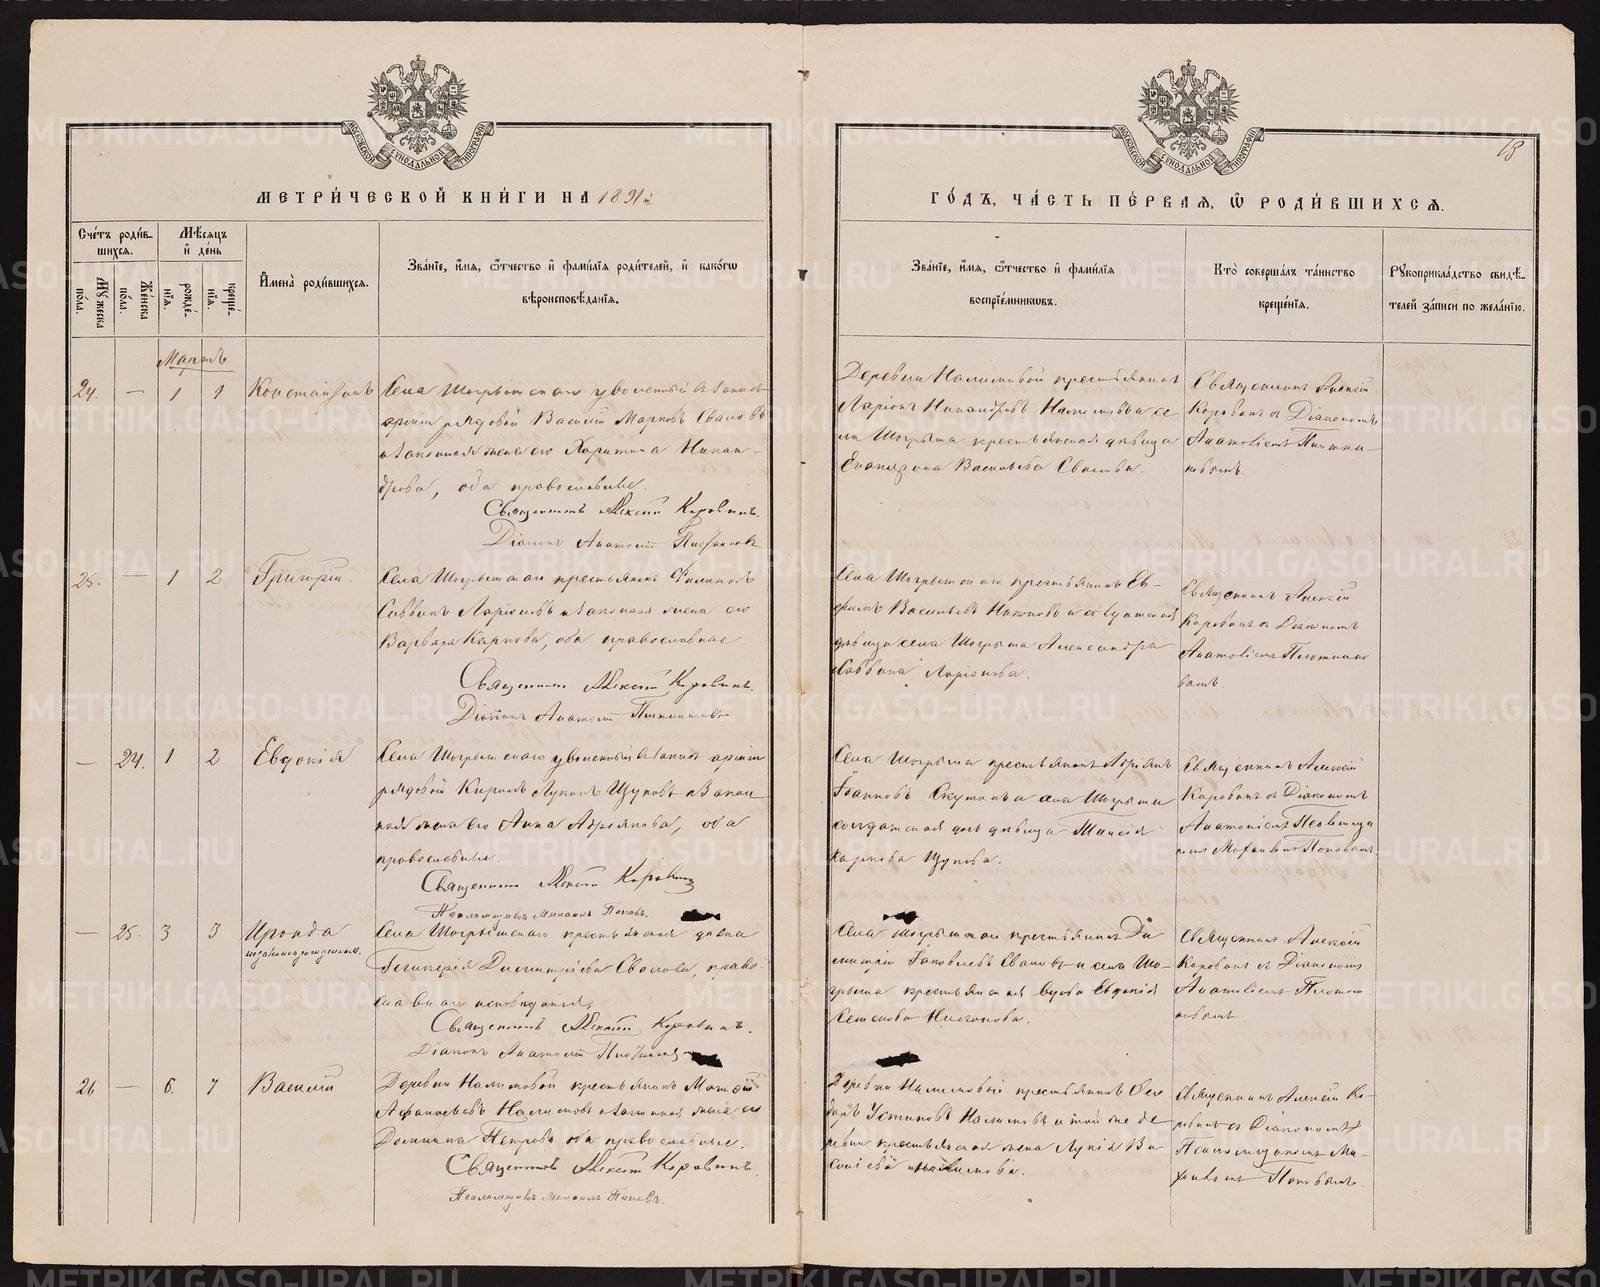 МОСКОВСКОЙ СѴНОДАЛЬНОЙ ТИПОГРАФІИ
МОСКОВСКОЙ СѴНОДАЛЬНОЙ ТИПОГРАФІИ
13
МЕТРИ́ЧЕСКОЙ КНИ́ГИ НА 1891
ГО́ДЪ, ЧА́СТЬ ПЕ́РВАЯ, Ѡ РОДИ́ВШИХСЯ.
Сче́тъ роди́в-
шихся.
Мѣ́сяцъ
и҆ де́нь
Мꙋ́жеска
по́ла.
Же́нска
по́ла.
рожде́-
нїя.
креще́-
нїя.
И҆мена̀ роди́вшихся.
Зва́нїе, и҆́мя, ѻ҆́тчество и҆ фами́лїя роди́телей, и҆ како́гѡ
вѣроисповѣ́данїя.
Зва́нїе, и҆́мя, ѻ҆́тчество и҆ фами́лїя
воспрїе́мникѡвъ.
Кто̀ соверша́лъ та́инство
креще́нїя.
Рꙋкоприкла́дство свидѣ́-
телей за́писи по жела́нїю.
Мартъ
24. — 1 1 Константинъ
Села Шогрышскаго уволенный в запасъ
арміи рядовой Василій Марковъ Сваловъ
и законная жена его Харитина Никан-
дрова, оба православные.
Священникъ Алексій Коровинъ.
Діаконъ Анатолій Плотниковъ
Деревни Налимовой крестьянинъ
Ларіонъ Никандровъ Налимовъ и се
ла Шогрыша крестьянская дѣвица
Васильева Свалова.
Священникъ Алексій
Коровинъ съ Діакономъ
Анатоліемъ Плотни-
ковымъ.
25. — 1 2 Григорій
Села Шогрышскаго крестьянинъ
Саввинъ Ларіоновъ и законная жена его
Варвара Карпова, оба православные
Священникъ Алексій Коровинъ.
Діаконъ Анатолій Плотниковъ
Села Шогрышскаго крестьянинъ Ев-
Васильевъ и солдатская
дѣвица села Шогрыша Александра
Саввина Ларіонова.
Священникъ Алексій
Коровинъ съ Діакономъ
Анатоліемъ Плотнико
вымъ.
— 24. 1 2 Евдокія
Села Шогрышскаго уволенный в запасъ арміи
рядовой Кириллъ Лукинъ Щуковъ и закон
ная жена его Анна Андреянова, оба
православные.
Священникъ Алексій Коровинъ
Псаломщикъ Михаилъ Поповъ.
Села Шогрыша крестьянинъ
Іоанновъ и села Шогрыша
солдатская дѣвица Таисія
Карпова Щукова.
Священникъ Алексій
Коровинъ съ Діакономъ
Анатоліемъ
Поповымъ
— 25. 3 3 Ираида
незаконнорожденная.
Села Шогрышскаго крестьянская дѣвка
Гликерія Димитріева Свалова, право-
славнаго исповѣданія,
Священникъ Алексій Коровинъ.
Діаконъ Анатолій Плотниковъ
Села Шогрышскаго крестьянинъ Ди
митрій Іаковлевъ Сваловъ и села Шо-
грыша крестьянская вдова Евдокія
Семенова Никонова.
Священникъ Алексій
Коровинъ съ Діакономъ
Анатоліемъ Плотни
ковымъ
26 — 6. 7 Василій
Деревни Налимовой крестьянинъ
Афанасьевъ Налимовъ и законная жена его
Домнина Петрова оба православные.
Священникъ Алексій Коровинъ.
Псаломщикъ Михаилъ Поповъ.
Деревни Налимовой крестьянинъ Ѳео
доръ Устиновъ Налимовъ и той же де
ревни крестьянская жена Лукія Ва
сильева Налимова.
Священникъ Алексій Ко-
ровинъ съ Діакономъ
Псаломщикомъ Ми-
хаиломъ Поповымъ.
METRIKI.GASO-URAL.RU